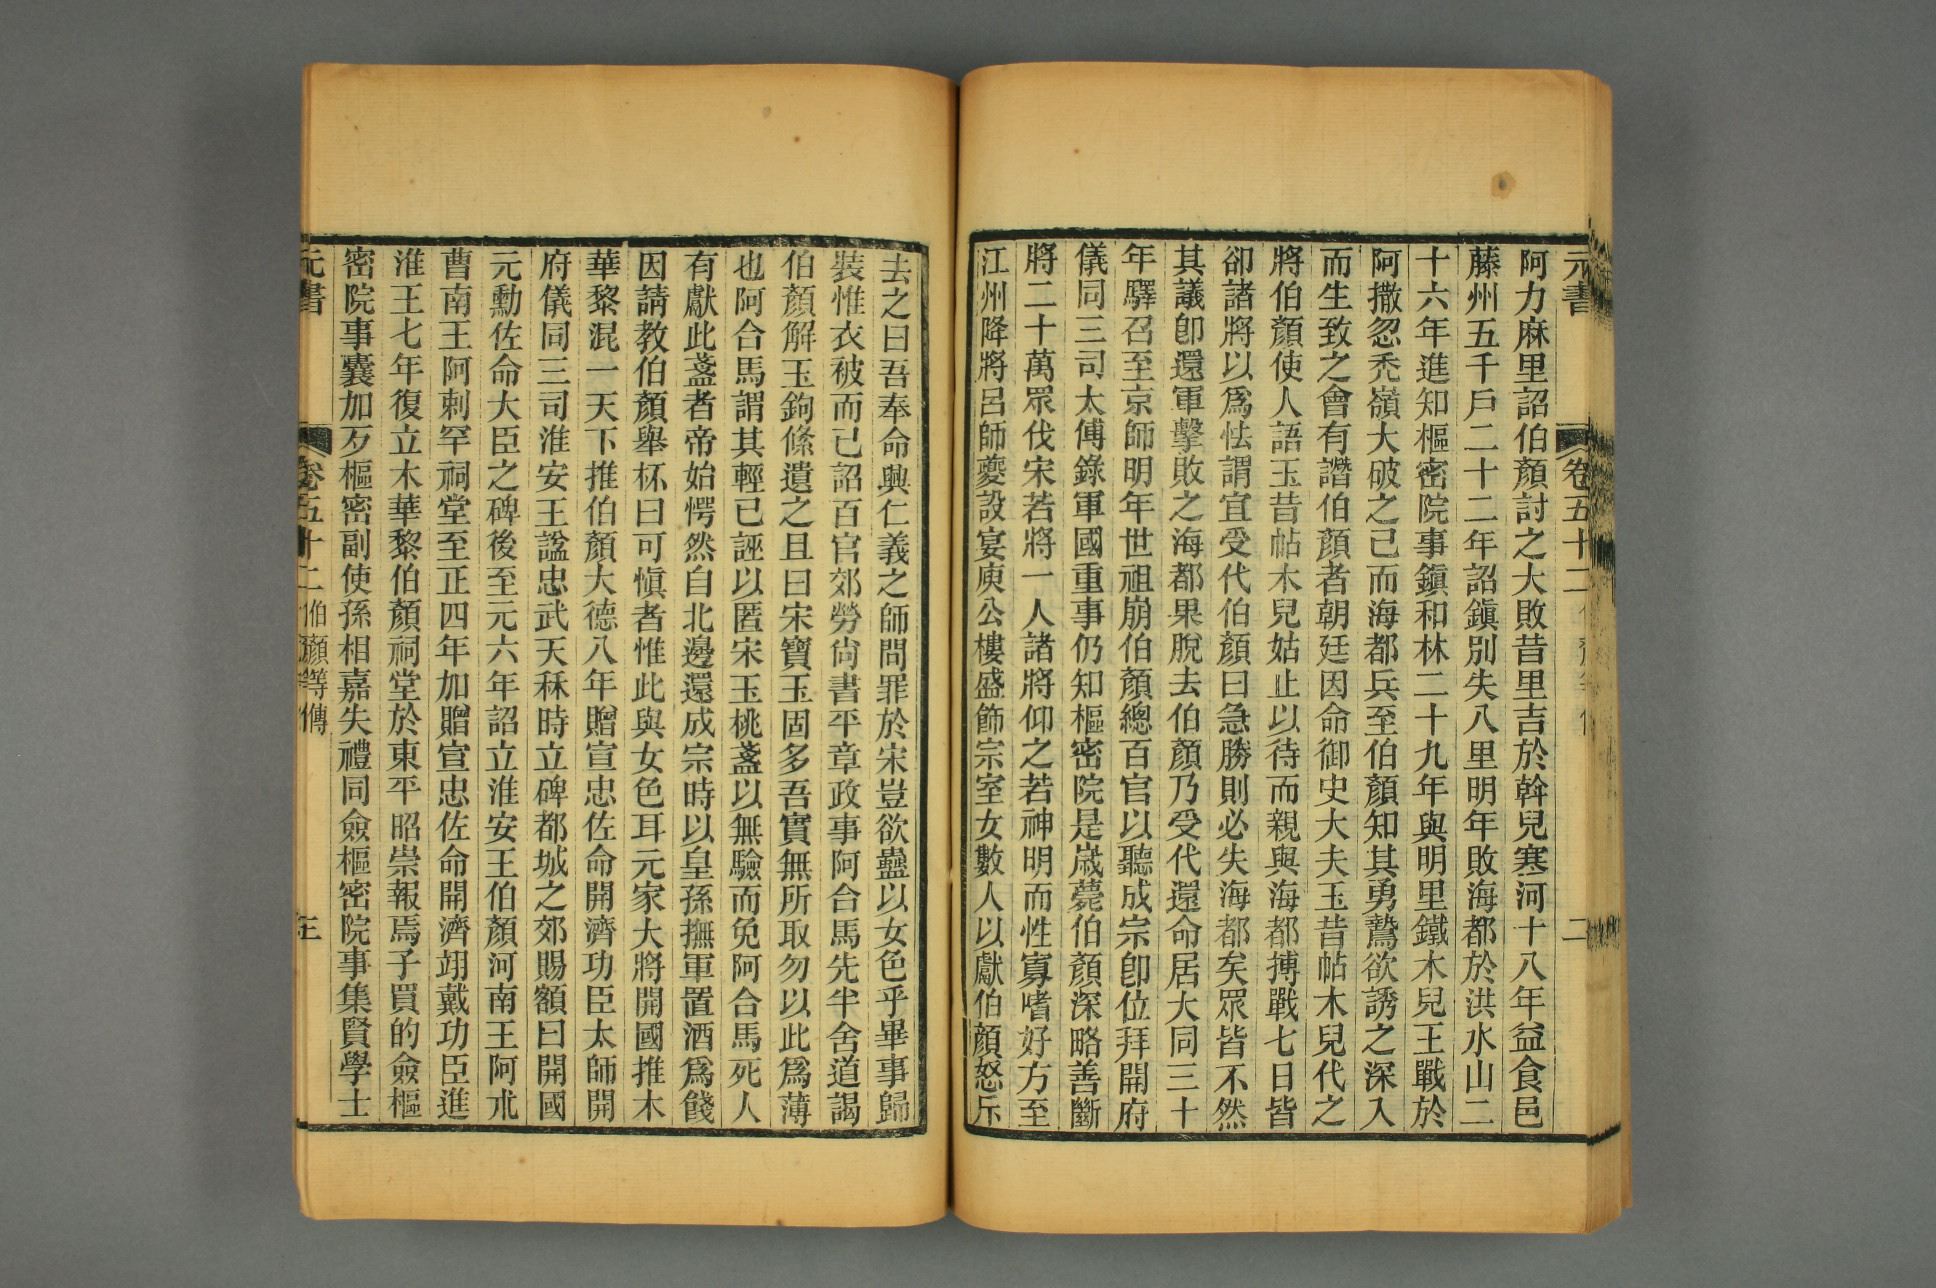 元書
卷五十二
二
阿力麻里詔伯顏討之大敗昔里吉於斡兒寒河十八年益食邑
藤州五千戶二十二年詔鎮別失八里明年敗海都於洪水山二
十六年進知樞密院事鎮和林二十九年與明里鐵木兒王戰於
阿撒忽禿嶺大破之已而海都兵至伯顏知其勇鷙欲誘之深入
而生致之會有譖伯顏者朝廷因命御史大夫玉昔帖木兒代之
將伯顏使人語玉昔帖木兒姑止以待而親與海都搏戰七日皆
卻諸將以爲怯謂宜受代伯顏曰急勝則必失海都矣眾皆不然
其議卽還軍擊敗之海都果脫去伯顏乃受代還命居大同三十
年驛召至京師明年世祖崩伯顏總百官以聽成宗卽位拜開府
儀同三司太傅錄軍國重事仍知樞密院是歲薨伯顏深略善斷
將二十萬眾伐宋若將一人諸將仰之若神明而性寡嗜好方至
江州降將呂師夔設宴庾公樓盛飾宗室女數人以獻伯顏怒斥
去之曰吾奉命興仁義之師問罪於宋豈欲蠱以女色乎畢事歸
裝惟衣被而已詔百官郊勞尚書平章政事阿合馬先半舍道謁
伯顏解玉鉤絛遺之且曰宋寶玉固多吾實無所取勿以此爲薄
也阿合馬謂其輕已誣以匿宋玉桃盞以無驗而免阿合馬死人
有獻此盞者帝始愕然自北邊還成宗時以皇孫撫軍置酒爲餞
因請教伯顏舉杯曰可愼者惟此與女色耳元家大將開國推木
華黎混一天下推伯顏大德八年贈宣忠佐命開濟功臣太師開
府儀同三司淮安王諡忠武天秝時立碑都城之郊賜額曰開國
元勳佐命大臣之碑後至元六年詔立淮安王伯顏河南王阿朮
曹南王阿刺罕祠堂至正四年加贈宣忠佐命開濟翊戴功臣進
淮王七年復立木華黎伯顏祠堂於東平昭崇報焉子買的僉樞
密院事囊加歹樞密副使孫相嘉失禮同僉樞密院事集賢學士
元書
卷五十二 伯顏等傳
三